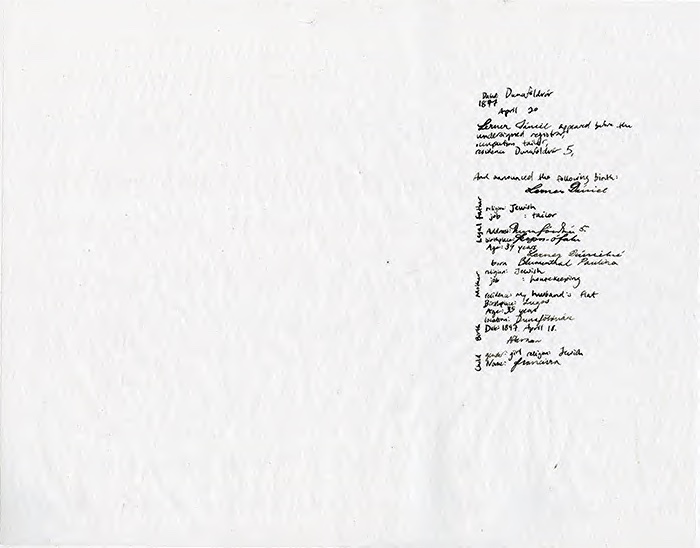 Dated Dunaföldvár
1897
April 20
Lerner Dániel appeared before the
undersigned registrar,
occupation tailor,
residence Dunaföldvár 5,
And announced the following birth:
Lerner Dániel
Legal Father
religion: Jewish
job : tailor
Address: 5
Birthplace:
Age: 37 years
Lerner Dánielné
born Blumenthal Paulina
Mother
religion: Jewish
job : housekeeping
residence: my husband's flat
Birthplace: Lugos
Age: 35 years
Birth
location: Dunaföldvár
Date: 1897. April 18.
Afternoon
Child
gender: girl religion Jewish
Name: Francisca